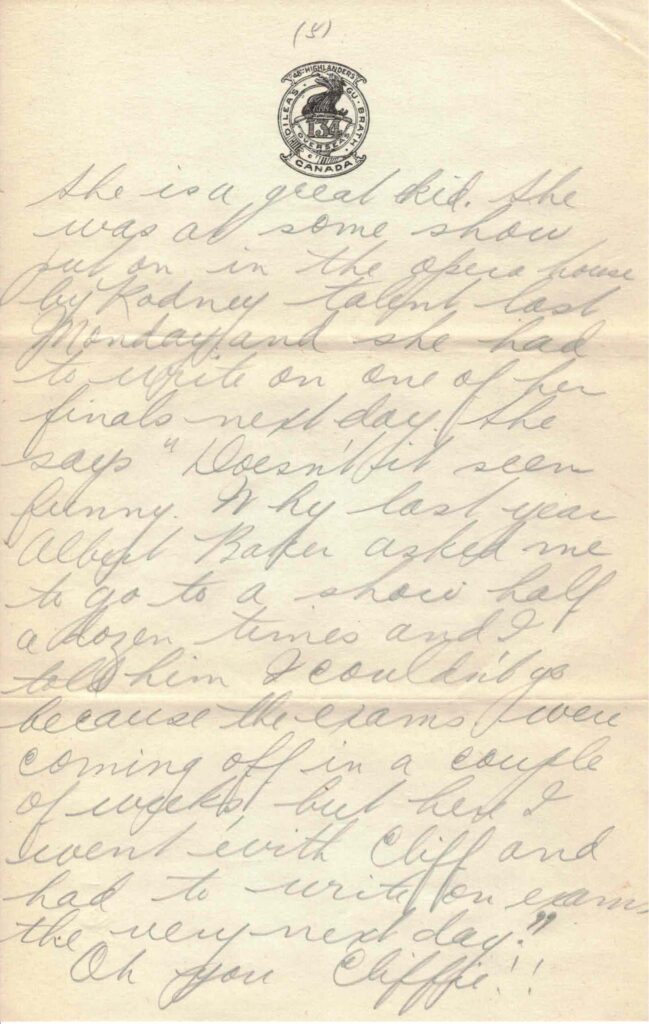 (5)
48TH HIGHLANDERS
DILEAS GU BRATH
134
OVERSEAS
CANADA
she is a great kid. She
was at some show
put on in the opera house
by Rodney talent last
Monday and she had
to write on one of her
finals next day. She
says "Doesn't it seem
funny. Why last year
Albert Baker asked me
to go to a show half
a dozen times and I
told him I couldn't go
because the exams were
coming off in a couple
of weeks but here I
went with Cliff and
had to write on exams
the very next day."
Oh you Cliffie!!